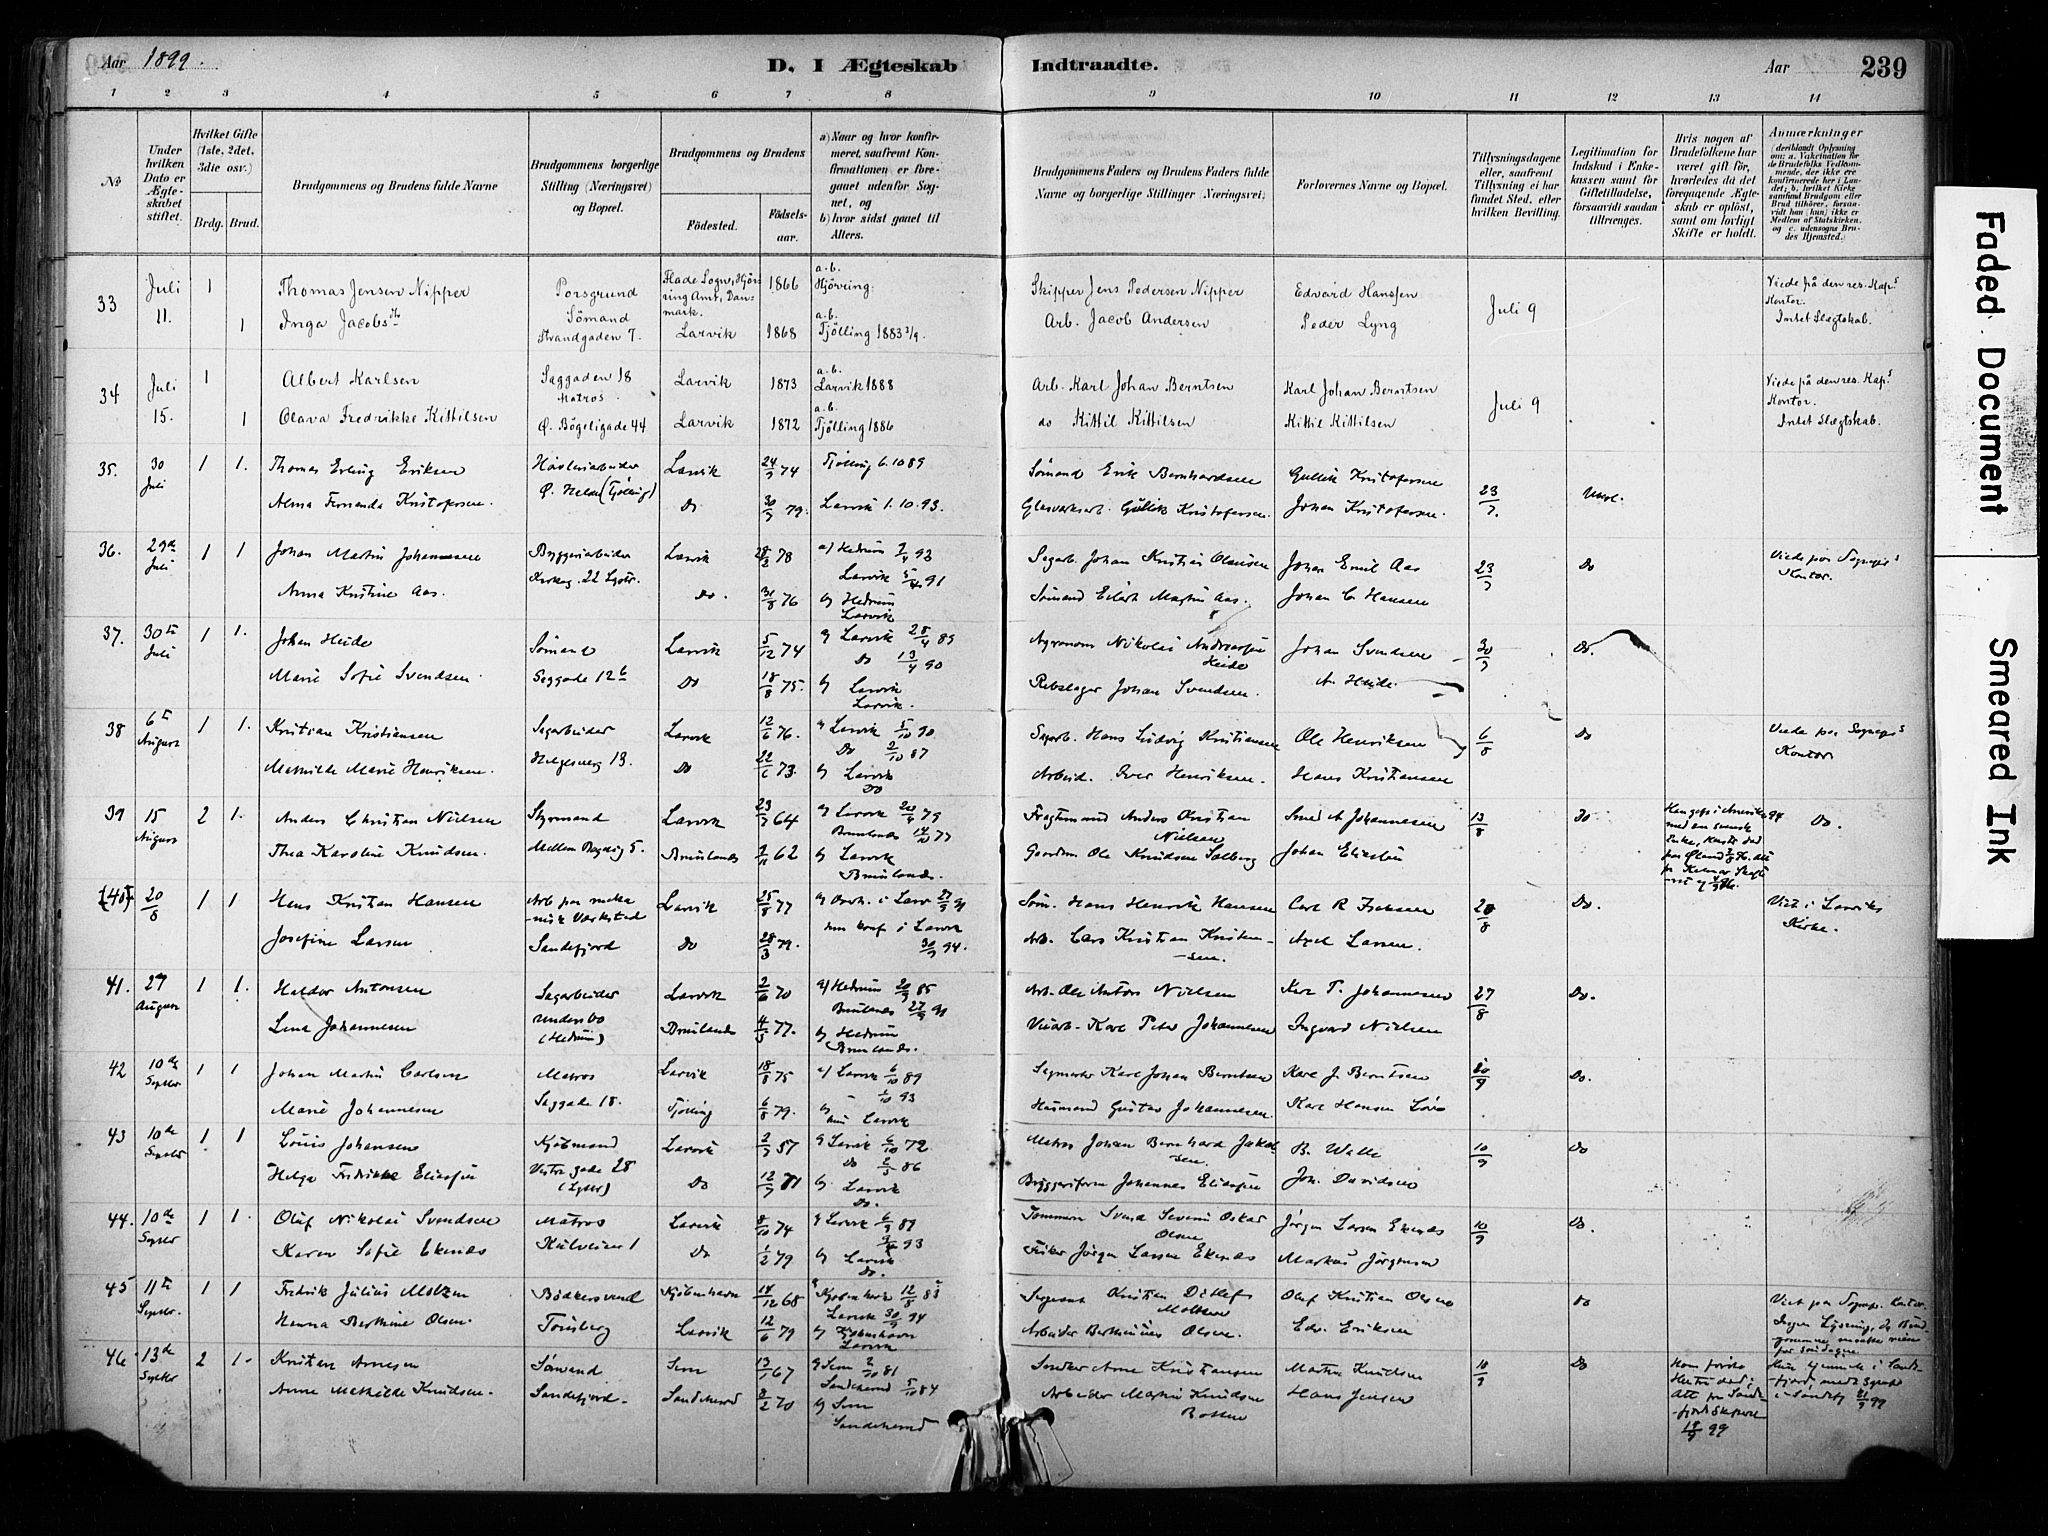 Aar 1899.
D. I Ægteskab Indtraadte.
Aar 239
1 2 3 4 5 6 7 8 9 10 11 12 13 14
No
Under hvilken Dato er Ægteskabet stiftet.
Hvilket Gifte (1ste, 2det, 3die osv.)
Brdg. Brud.
Brudgommens og Brudens fulde Navne
Brudgommens borgerlige Stilling (Næringsvei) og Bopæl.
Brudgommens og Brudens
Fødested.
Fødselsaar.
a) Naar og hvor konfirmeret, saafremt Konfirmationen er foregaaet udenfor Sognet, og
b) hvor sidst gaaet til Alters.
Brudgommens Faders og Brudens Faders fulde Navne og borgerlige Stillinger (Næringsvei)
Forlovernes Navne og Bopæl.
Tillysningsdagene eller, saafremt Tillysning ei har fundet Sted, efter hvilken Bevilling.
Legitimation for Indskud i Enkekassen samt for Giftetilladelse, forsaavidt saadan tiltrænges.
Hvis nogen af Brudefolkene har været gift før, hvorledes da det foregaaende Ægteskab er opløst, samt om lovligt Skifte er holdt.
Anmærkninger (deriblandt Oplysning om: a. Vakcination for de Brudefolks Vedkommende, der ikke ere konfirmerede her i Landet; b. hvilket Kirkesamfund Brudgom eller Brud tilhører, forsaavidt han (hun) ikke er Medlem af Statskirken, og c. udensogns Brudes Hjemsted.)
33 Juli 11. 1 Thomas Jensen Nipper Porsgrund Sömand Flade Sogn, Hjörring Amt, Danmark. 1866 a.b. Hjörring. Skipper Jens Pedersen Nipper Edvard Hanssen Juli 9 Viede på den res. Kap.s Kontor. Intet Slægtskab.
1 Inga Jacobsdtr Strandgaden 7. Larvik 1868 a.b. Tjölling 1883 Arb. Jacob Andersen Peder Lyng
34 Juli 15. 1 Albert Karlsen Saggaden 18 Matros. Larvik 1873 a.b. Larvik 1888 Arb. Karl Johan Berntsen Karl Johan Berntsen Juli 9 Viede på den res. Kap.s Kontor. Intet Slægtskab.
1 Olava Fredrikke Kittilsen Ø. Bögeligade 44 Larvik 1872 a.b. Tjölling 1886 do Kittil Kittilsen Kittil Kittilsen
35. 30 Juli 1 1. Thomas Erling Eriksen Ø. Helde (Tjölling) Larvik 24/9 74 Tjölling 6.10 89 Sömand Erik Bernhardsen Gullik Kristofersen 23/7
Alma Fernanda Kristofersen. Do 30/9 79. Larvik 1.10.93. Glasværksarb. Gullik Kristofersen. Johan Kristofersen.
36. 29de Juli 1 1 Johan Martin Johannesen Byggeriarbeider Larvik 78 a) Hedrum 93 Sagarb. Johan Kristian Olausen Johan Emil Aas 23/7 Do Viede paa Sogneprs Kontor.
Anna Kristine Aas. Do. 31/8 76 Larvik 91 b) Hedrum Larvik Sömand Eilert Martin Aas. Johan C Hansen
37. 30te Juli 1 1. Johan Heide Sömand Larvik 5/12 74 a) Larvik 28/4 89 Agronom Nikolai Andreassen Heide Johan Svendsen 30/7 Do.
Marie Sofie Svendsen. Saggade 12b Do 18/8 75. Do 13/4 90 b) Larvik Larvik. Rebslager Johan Svendsen. A. Heide.
38 6te August 1 1. Kristian Kristiansen Sagarbeider Larvik 12/6 76. a) Larvik 5/10 90. Sagarb. Hans Ludvig Kristiansen Ole Henriksen 6/8 Do Viede paa Sogneprs Kontor
Mathilde Marie Henriksen. Helgesveg 13. Do 22/6 73. Do 2/10 87 b) Larvik Do Arbeid. Iver Henriksen. Hans Kristiansen
39 15 August 2 1. Anders Christian Nielsen Styrmand Larvik 64 a) Larvik 79 Fragtemand Anders Kristian Nielsen Smed A Johannesen 13/8 Do Do.
Thea Karoline Knudsen. Brunlanes 62 Brunlanes 77 b) Larvik Brunlanes. Gaardm. Ole Knudsen Solberg Johan
(40) 20/8 1 1 Hans Kristian Hansen Arb paa mekanisk Værksted Larvik 25/8 77 Söm. Hans Henrik Hansen Carl R 20/8 Do. Viet i Larviks Kirke.
Josefine Larsen Sandefjord Do 28/3 79. hun konf i Larvik 30/9 94. Arb. Lars Kristian Kristensen. Axel Larsen.
41. 27 August 1 1. Halvor Antonsen Sagarbeider Larvik 2/6 70 a) Hedrum 85 Arb. Ole Anton Nielsen Karl T. Johannesen 27/8 Do.
Lina Johannesen (Hedrum) Brunlanes 4/5 77. Brunlanes 91 b) Hedrum Brunlanes. Karl Peter Johannesen Ingvard Nielsen
42 10de Septbr 1 1 Johan Martin Carlsen Matros Larvik 18/8 75 a) Larvik 6/10 89 Karl Johan Berntsen Karl J. Berntsen Do.
Marie Johannesen Saggade 18. Tjölling 6/8 79. 93 b) Larvik Husmand Gustav Johannesen. Karl Hansen
43 10de Septbr 1 1 Louis Johansen Kjöbmand Larvik 57 a) Larvik 6/10 72 Matros Johan Bernhard Jakobsen. B. Walle 10/9 Do
Helga Fredrikke Eliassen Vestregade 28 Do 12/9 71 Do 86 b) Larvik Do. Johannes Eliassen Joh. Davidsen
44. 10de Septbr 1 1. Oluf Nikolai Svendsen Matros Larvik 8/10 74 a) Larvik 89 Tömmerm Svend Severin Oskar Olsen Jörgen Larsen Ekenæs 10/9 Do.
Karen Sofie Ekenæs Do 1/2 79 93 b) Larvik Do. Fisker Jörgen Larsen Ekenæs Markus Jörgensen
45 11te Septbr. 1 1 Fredrik Julius Moltzen Bödkersvend Kjöbenhavn 12 68 Kjöbenhavn 12/8 83 Sergeant Kristian Ditlefs Moltzen Oluf Kristian Olsen Do Viet paa Sognepr. Kontor. Ingen Lysning,
Hanna Berthine Olsen. Tönsberg Larvik 12/6 79 Larvik 30/9 94 b) Kjöbenhavn Larvik Arbeider Berthinius Olsen. Edv. Eriksen
46. 13de Septbr 2 1. Kristian Arnesen Sömand Sem 67 a) Sem 81 Arne Kristiansen Martin Knudsen 10/9 Do 99
Anne Mathilde Knudsen. Sandefjord. Sandeherred 2 70 Sandeherred 84 b) Sem Sandeherred Arbeider Martin Knudsen Hans Jensen
Faded Document
Smeared Ink